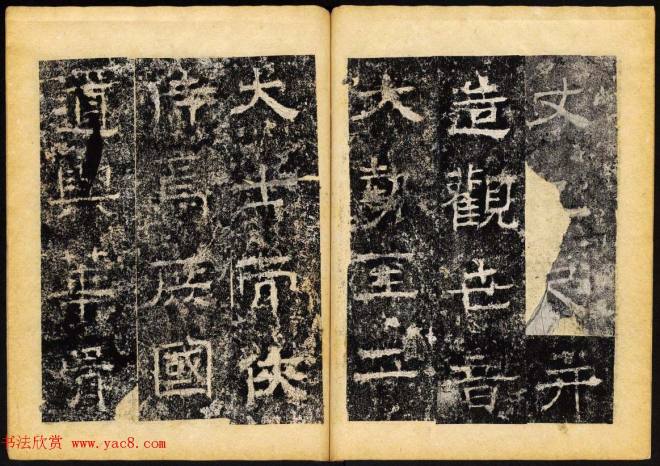 丈并
造觀世音
大勢至二
大士而俠
侍焉國
道與華胥
书法欣赏 www.yac8.com